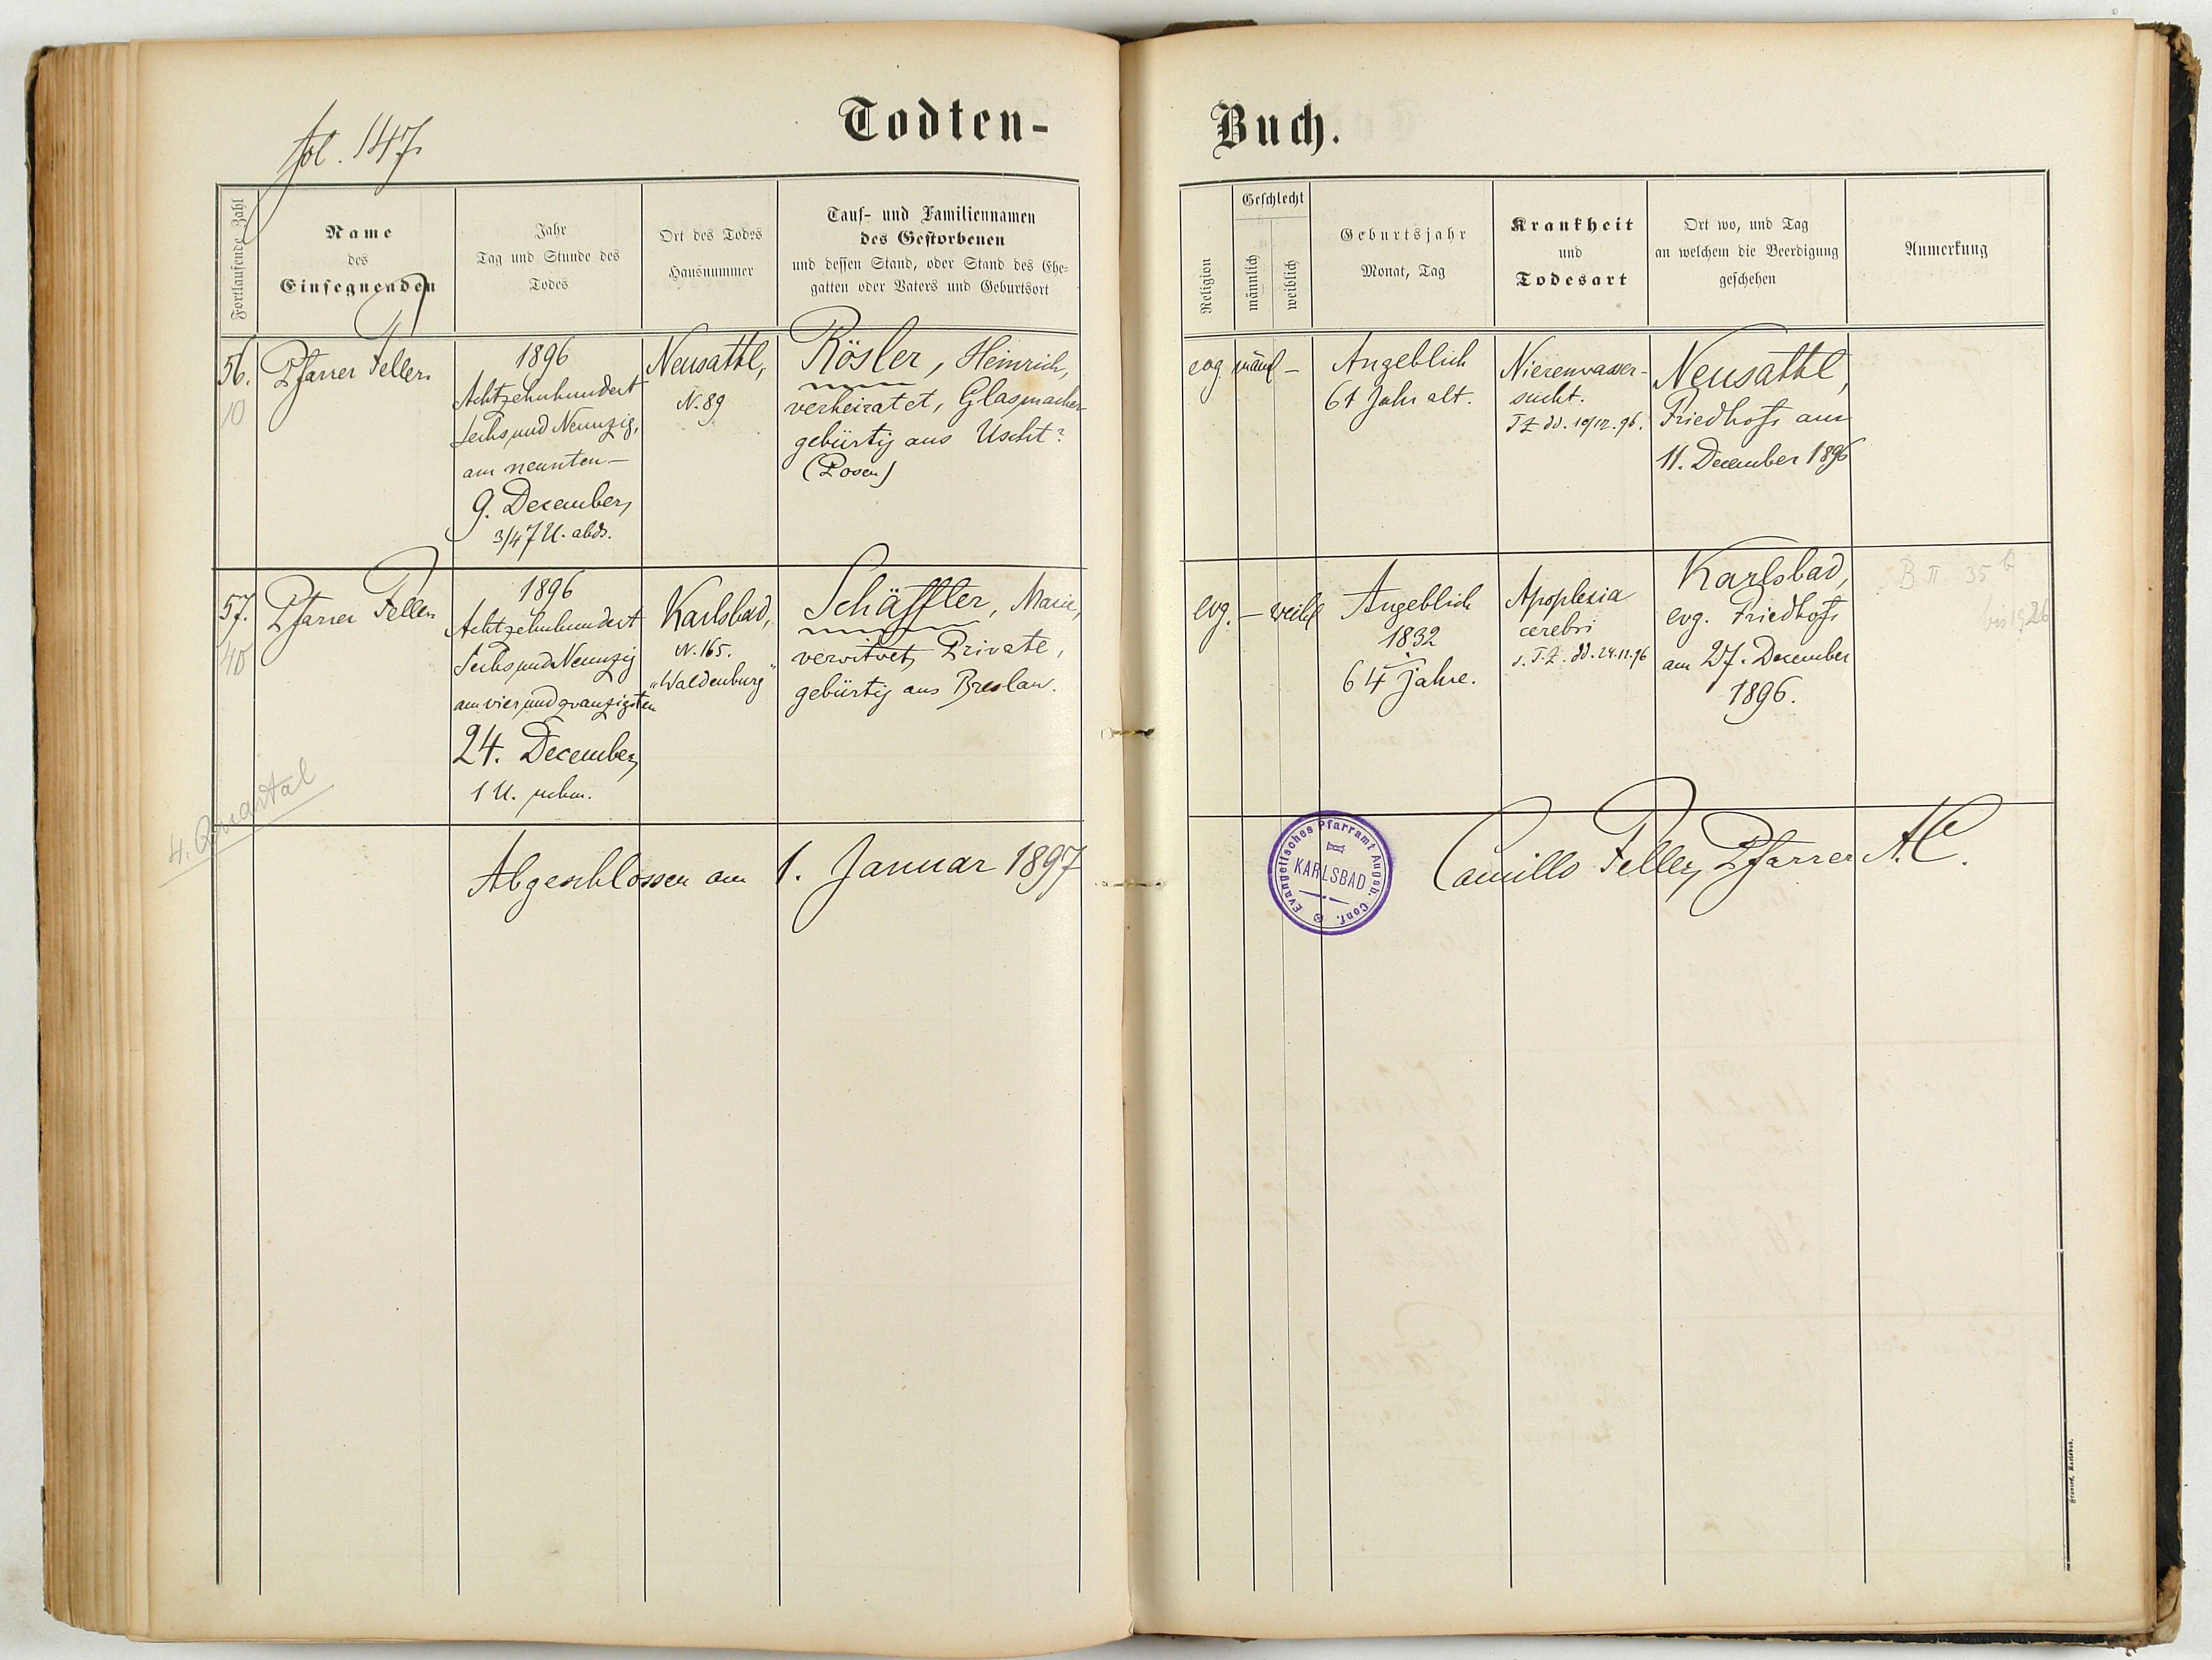 fol. 147.
Todten-Buch.
Fortlaufende Zahl
Name
des
Einsegnenden
Jahr
Tag und Stunde des
Todes
Ort des Todes
Hausnummer
Tauf- und Familiennamen
des Gestorbenen
und dessen Stand, oder Stand des Ehe-
gatten oder Vaters und Geburtsort
Religion
Geschlecht
männlich
weiblich
Geburtsjahr
Monat, Tag
Krankheit
und
Todesart
Ort wo, und Tag
an welchem die Beerdigung
geschehen
Anmerkung
56.
10
Pfarrer Feller
1896
Achtzehnhundert
Sechs und Neunzig,
am neunten—
9. December,
3/4 7 U. abds.
Neusattl,
N. 89
Rösler, Heinrich,
verheiratet, Glasmacher
gebürtig aus Uscht?
(Posen)
evg.
männl —
Angeblich
61 Jahr alt.
Nierenwasser-
sucht.
T Z dd. 10/12. 96.
Neusattl,
Friedhof, am
11. December 1896
57.
40
Pfarrer Feller
1896
Achtzehnhundert
Sechs und Neunzig
am vier und zwanzigsten
24. December,
1 U. nchm.
Karlsbad,
N. 165.
"Waldenburg"
Schäffler, Marie,
verwitwet, Private,
gebürtig aus Breslau.
evg.
— weibl
Angeblich
1832
64 Jahre.
Apoplexia
cerebri
s. T. Z. dd. 24.12.96
Karlsbad,
evg. Friedhof,
am 27. December
1896.
B II 35 b
bis 1926
4. Quartal
Abgeschlossen am 1. Januar 1897
Evangelisches Pfarramt Augsb. Conf.
KARLSBAD
Camillo Feller, Pfarrer A.C.